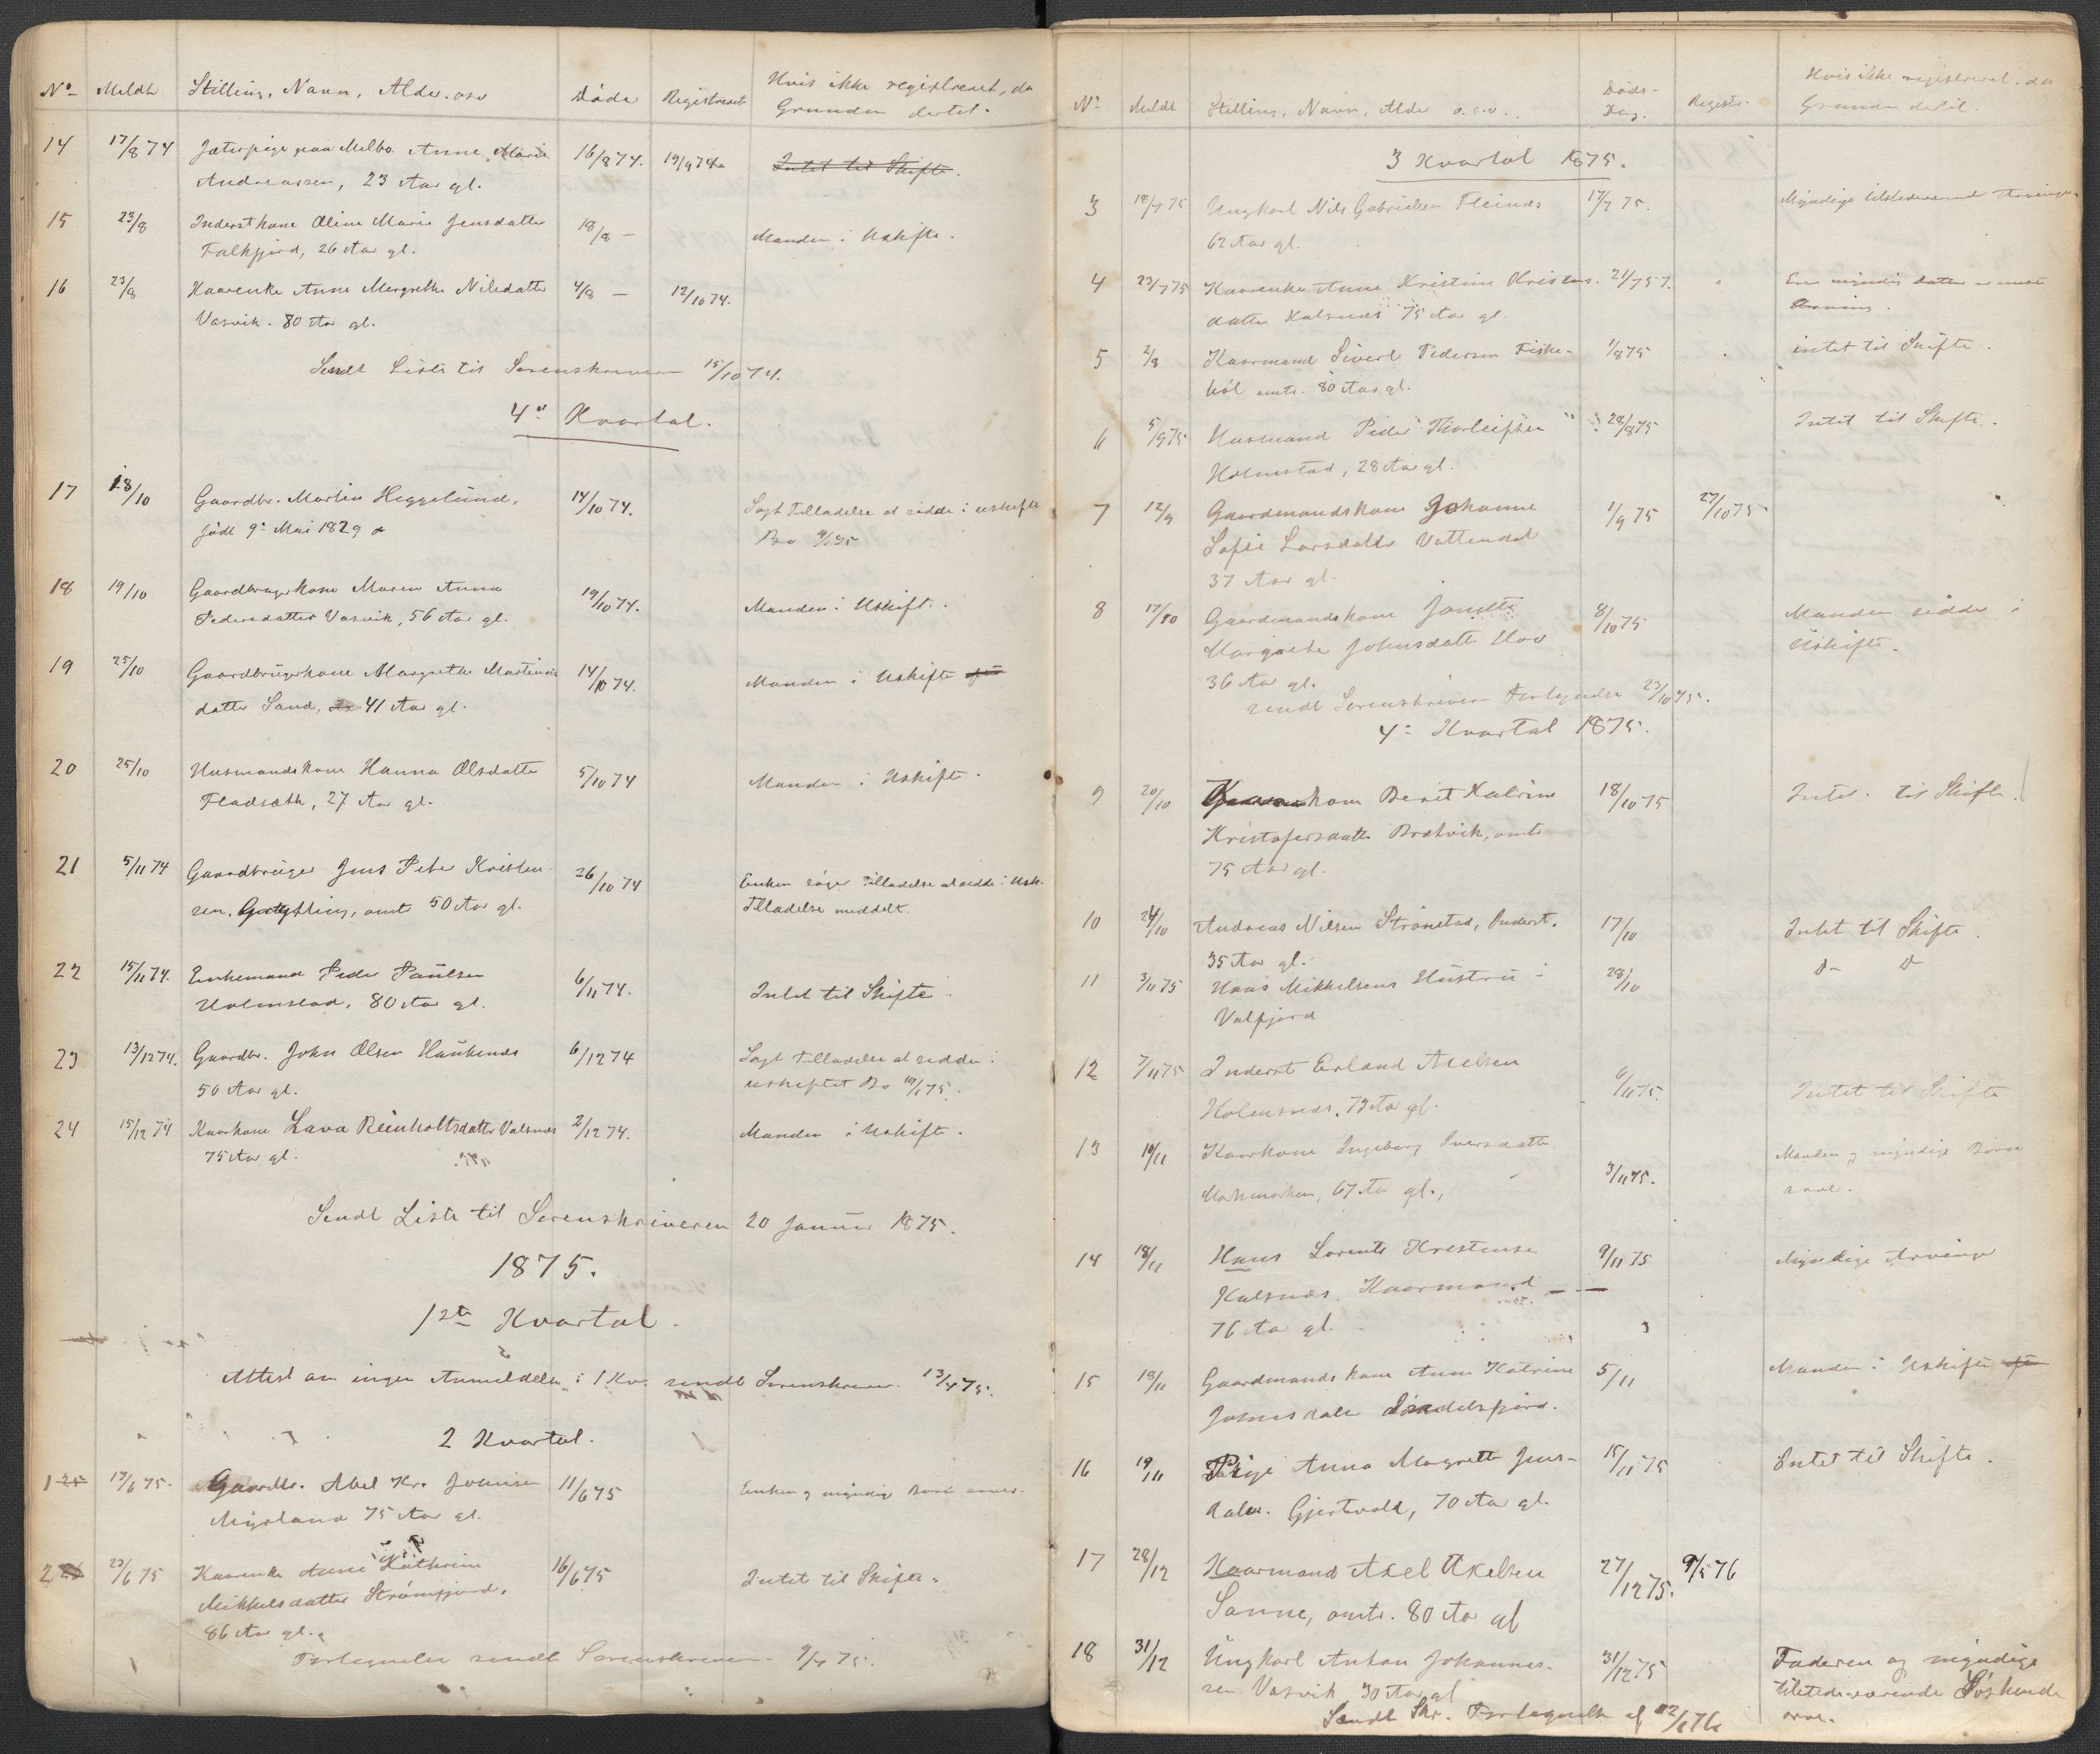 No Meldt Stilling, Navn, Alder. osv Døde Registreret Hvis ikke registreret, da
Grunden dertil.
14 17/8 74 pige paa Melbo Anne Marie 16/8 74. 19/9 74 Intet til Skifte.
Andreassen, 23 Aar gl.
15 23/8 Inderst kone Oline Marie Jensdatter 18/8 — Manden i Uskifte.
Falkfjord, 26 Aar gl.
16 23/8 Kaarenke Anne Margrethe Nilsdatter 4/8 — 12/10 74.
Vasvik. 80 Aar gl.
Sendt Liste til Sorenskriveren 15/10 74.
4de Kvartal.
17 18/10 Gaardbr. Martin Heggelund, 14/10 74. Søgt Tilladelse at sidde i uskifte
født 9de Mai 1829 Bo
18 19/10 Gaardbrugerkone Maren Anna 19/10 74. Manden i Uskift.
Pedersdatter Vasvik, 56 Aar gl.
19 25/10 Gaardbrugerkone Margrethe Martinus 14/10 74. Manden i Uskifte
datter Sand, 41 Aar gl.
20 25/10 Husmandskone Hanna Olsdatter 5/10 74 Manden i Uskifte.
Fladsæth, 27 Aar gl.
21 5/11 74 Gaardbruger Jens Peter Kristen- 26/10 74 Enken søger Tilladelse at sidde i Usk.
sen, omtr 50 Aar gl. Tilladelse meddelt.
22 15/11 74. Enkemand Peder Paulsen 6/11 74. Intet til Skifte
Holmstad, 80 Aar gl.
23 13/12 74. Gaardbr. John Olsen Haukenæs 6/12 74 Søgt Tilladelse at sidde i
50 Aar gl. uskiftet Bo
24 15/12 74 Kaarkone Lava Reinholtsdatter Valsnæs 2/12 74. Manden i Uskifte.
75 Aar gl.
Sendt Liste til Sorenskriveren 20 Januar 1875.
1875.
1ste Kvartal.
Attest om ingen Anmeldelse i 1 Kv. sendt Sorenskriver. 13/4 75.
2 Kvartal.
1 25 17/6 75. Gaardbr. Abel Kr. Johnsen 11/6 75 Enken og myndige Børn arver.
Myrland 75 Aar gl.
2 23/6 75 Kaarenke Anne Kathrine 16/6 75 Intet til Skifte.
Mikkelsdatter Strømfjord,
86 Aar gl.
Fortegnelse sendt Sorenskriveren 9/7 75.
No Meldt Stilling, Navn, Alder o.s.v. Døds-
Dag. Registr. Hvis ikke registreret. da
Grunden dertil.
3 Kvartal 1875.
3 18/7 75 Ungkarl Nils Gabrielsen Fleinæs 17/7 75. Myndige tilstedeværende Arvinger.
62 Aar gl.
4 23/7 75 Kaarenke Anne Kristine Kristens. 21/7 75. En myndig datter er eneste
datter Kalsnæs 75 Aar gl. Arving.
5 2/8 Kaarmand Sivert Pedersen Fiske- 1/8 75 intet til Skifte.
bøl omtr. 80 Aar gl.
6 5/9 75 Husmand Peder Thorleifsen 28/8 75 Intet til Skifte.
Holmstad, 28 Aar gl.
7 12/9 Gaardmandskone Johanne 1/9 75 27/10 75
Sofie Larsdatter Vottendal
37 Aar gl.
8 17/10 Gaardmandskone Janette 8/10 75 Manden sidder i
Margrethe Johnsdatter Hov Uskifte.
36 Aar gl.
sendt Sorenskriver Fortegnelse 23/10 75.
4de Kvartal 1875.
9 20/10 kone Berit Katrine 18/10 75 Intet til Skifte.
Kristofersdatter Bratvik, omtr
75 Aar gl.
10 24/10 Andreas Nilsen Strønstad, Inderst. 17/10 Intet til Skifte.
35 Aar gl.
11 3/11 75 Hans Mikkelsens Hustru 28/10
Valfjord
12 7/11 75 Inderst Erland Nielsen 6/11 75. Intet til Skifte
Holmsnæs, 73 Aar gl.
13 10/11 Kaarkone Ingeborg Iversdatter 3/11 75. Manden og myndige Børn
67 Aar gl., arve.
14 18/11 Hans Lorents Kristensen 9/11 75 Myndige Arvinger
Kalsnæs, Kaarmand —
76 Aar gl.
15 18/11 Gaardmandskone Anne Katrine 5/11 Manden i Uskifte
Johnsdatr Indelsfjord.
16 19/11 Pige Anna Magrette Jens- 15/11 75 Entet til Skifte.
datr. Gjertvold, 70 Aar gl.
17 28/12 Kaarmand Axel Axelsen 27/12 75. 9/5 76
Sanne, omtr. 80 Aar gl
18 31/12 Ungkarl Anton Johannes- 31/12 75 Faderen og myndige
sen Vasvik 30 Aar gl tilstedeværende Søskende
Sendt Skr. Fortegnelse af 22/1 76 arve.